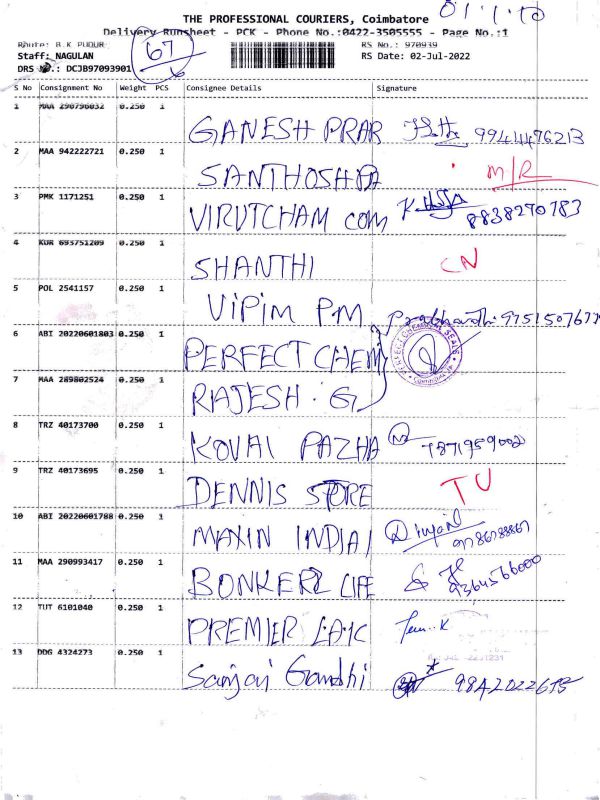 THE PROFESSIONAL COURIERS, Coimbatore
Delivery Runsheet - PCK - Phone No.:0422-3505555 - Page No.:1
Route: B.K PUDUR
67
RS No.: 970939
Staff: NAGULAN
RS Date: 02-Jul-2022
DRS No.: DCJB97093901
S No Consignment No Weight PCS Consignee Details Signature
1 MAA 290796032 0.250 1 GANESH PRAR 9944476213
2 MAA 942222721 0.250 1 SANTHOSH PA M/R
3 PMK 1171251 0.250 1 VIRUTCHAM COM 8838270783
4 KUR 693751209 0.250 1 SHANTHI CN
5 POL 2541157 0.250 1 VIPIM P.M
6 ABI 20220601803 0.250 1 PERFECT CHEM PERFECT CHEMICAL SEALS
7 MAA 289802524 0.250 1 RAJESH . G
8 TRZ 40173700 0.250 1 KOVAI PAZHA 7871959002
9 TRZ 40173695 0.250 1 DENNIS STORE TU
10 ABI 20220601788 0.250 1 MAXIN INDIA
11 MAA 290993417 0.250 1 BONKERZ LIFE 9364566000
12 TUT 6101040 0.250 1 PREMIER
13 DDG 4324273 0.250 1 Sanjai Gandhi